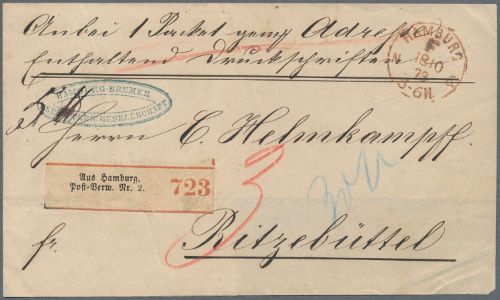 Anbei 1 Packet gemz Adresse
Enthaltend Druckschriften
HAMBURG
F
N
18 10
73
5-6N.
HAMBURG-BREMER
GESELLSCHAFT
Herrn C. Helmkampff
Aus Hamburg.
Post-Verw. Nr. 2.
723
3
fr. Ritzebüttel